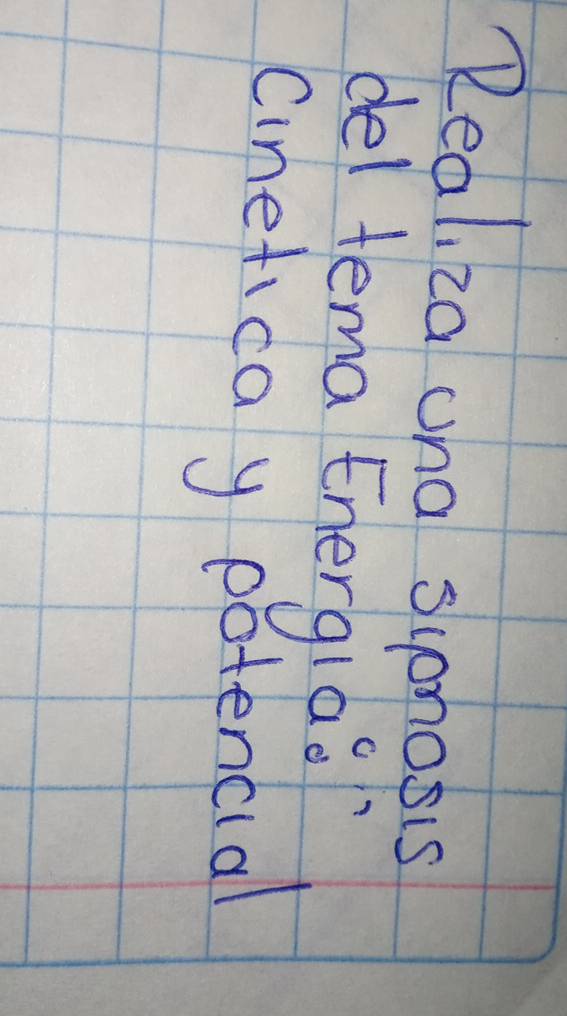 Realiza una sipnosis
del tema Energia:
Cinetica y potencial